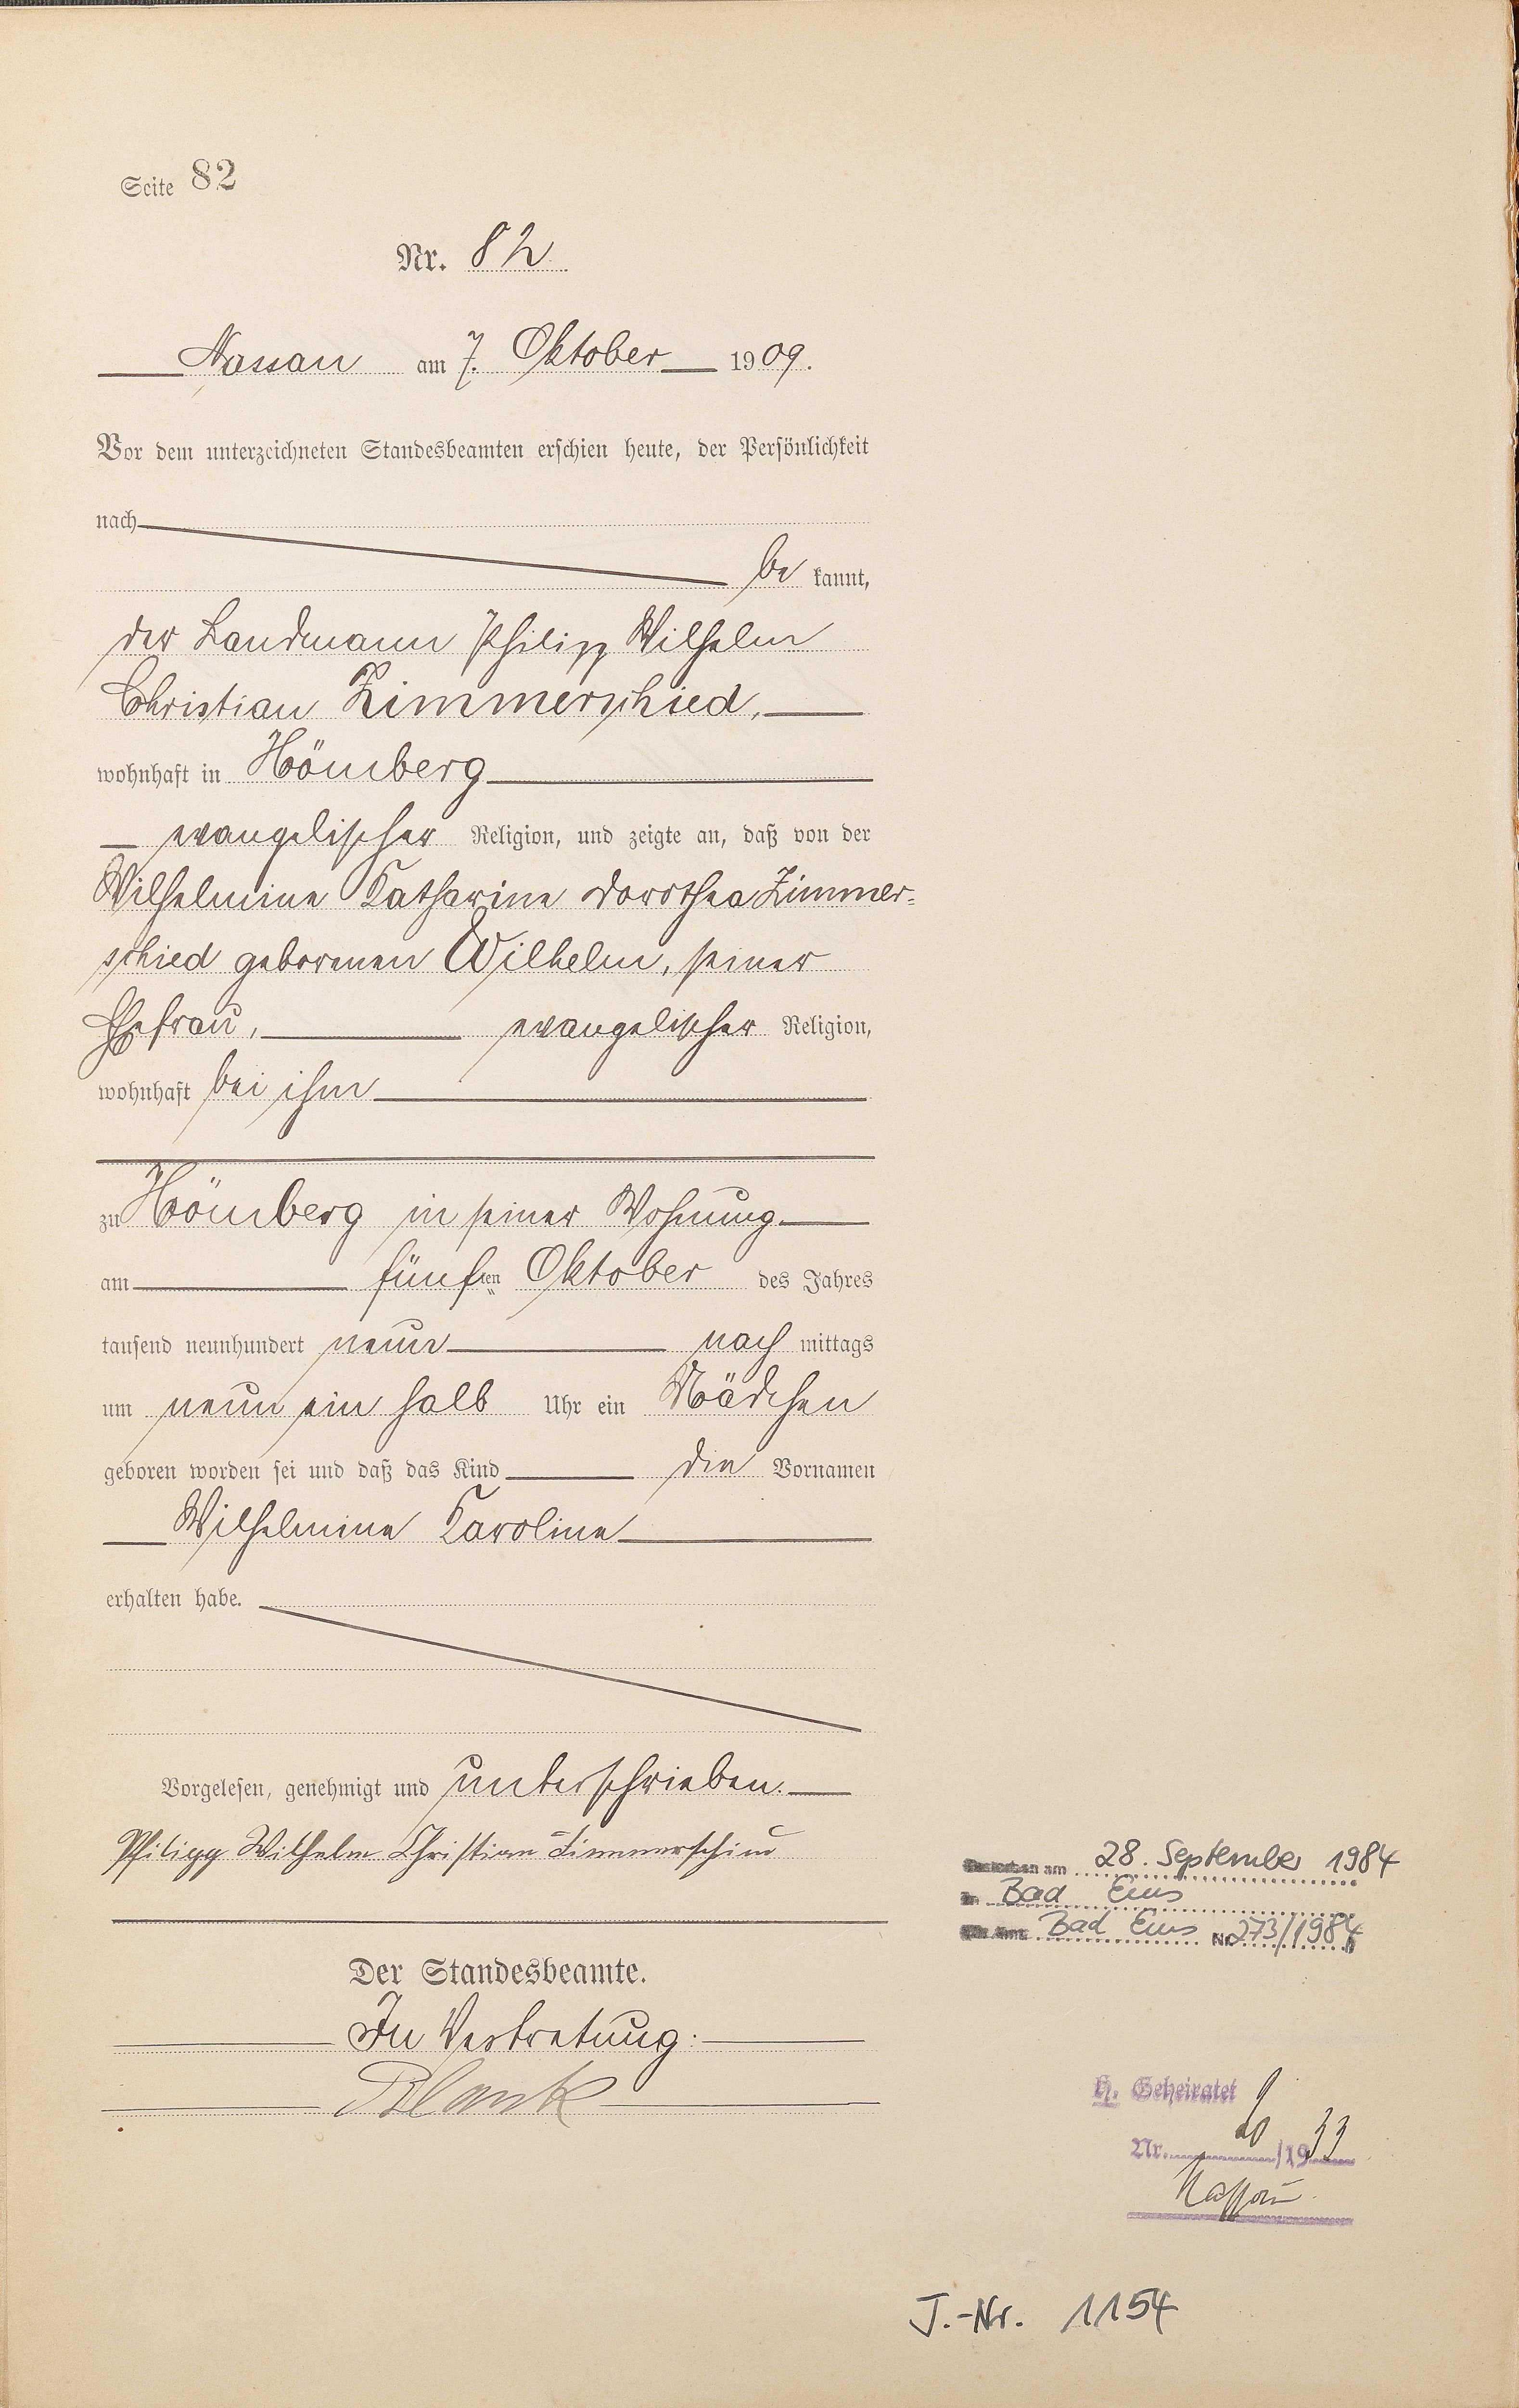 Seite 82
Nr. 82
Nassau am 7. Oktober 1909.
Vor dem unterzeichneten Standesbeamten erschien heute, der Persönlichkeit
nach
be kannt,
der Landmann Philipp Wilhelm
Christian Zimmerschied,
wohnhaft in Hömberg
evangelischer Religion, und zeigte an, daß von der
Wilhelmine Katharine Dorothea Zimmer-
schied geborenen Wilhelm, seiner
Ehefrau, evangelischer Religion,
wohnhaft bei ihm
zu Hömberg in seiner Wohnung
am fünften Oktober des Jahres
tausend neunhundert neun nach mittags
um neun ein halb Uhr ein Mädchen
geboren worden sei und daß das Kind die Vornamen
Wilhelmine Karoline
erhalten habe.
Vorgelesen, genehmigt und unterschrieben.
Philipp Wilhelm Christian Zimmerschied
Der Standesbeamte.
In Vertretung:
Blank
Gestorben am 28. September 1984
in Bad Ems
Bad Ems Nr. 273/1984
h. Geheiratet
Nr. /1933
Nassau.
J.-Nr. 1154